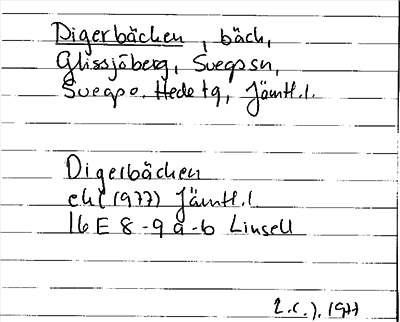 Digerbäcken, bäck,
Glissjöberg, Svegs sn,
Svegs o. Hede tg, Jämtl.l.
Digerbäcken
ek (1977) Jämtl.l
16E 8-9 a-b Linsell
1977